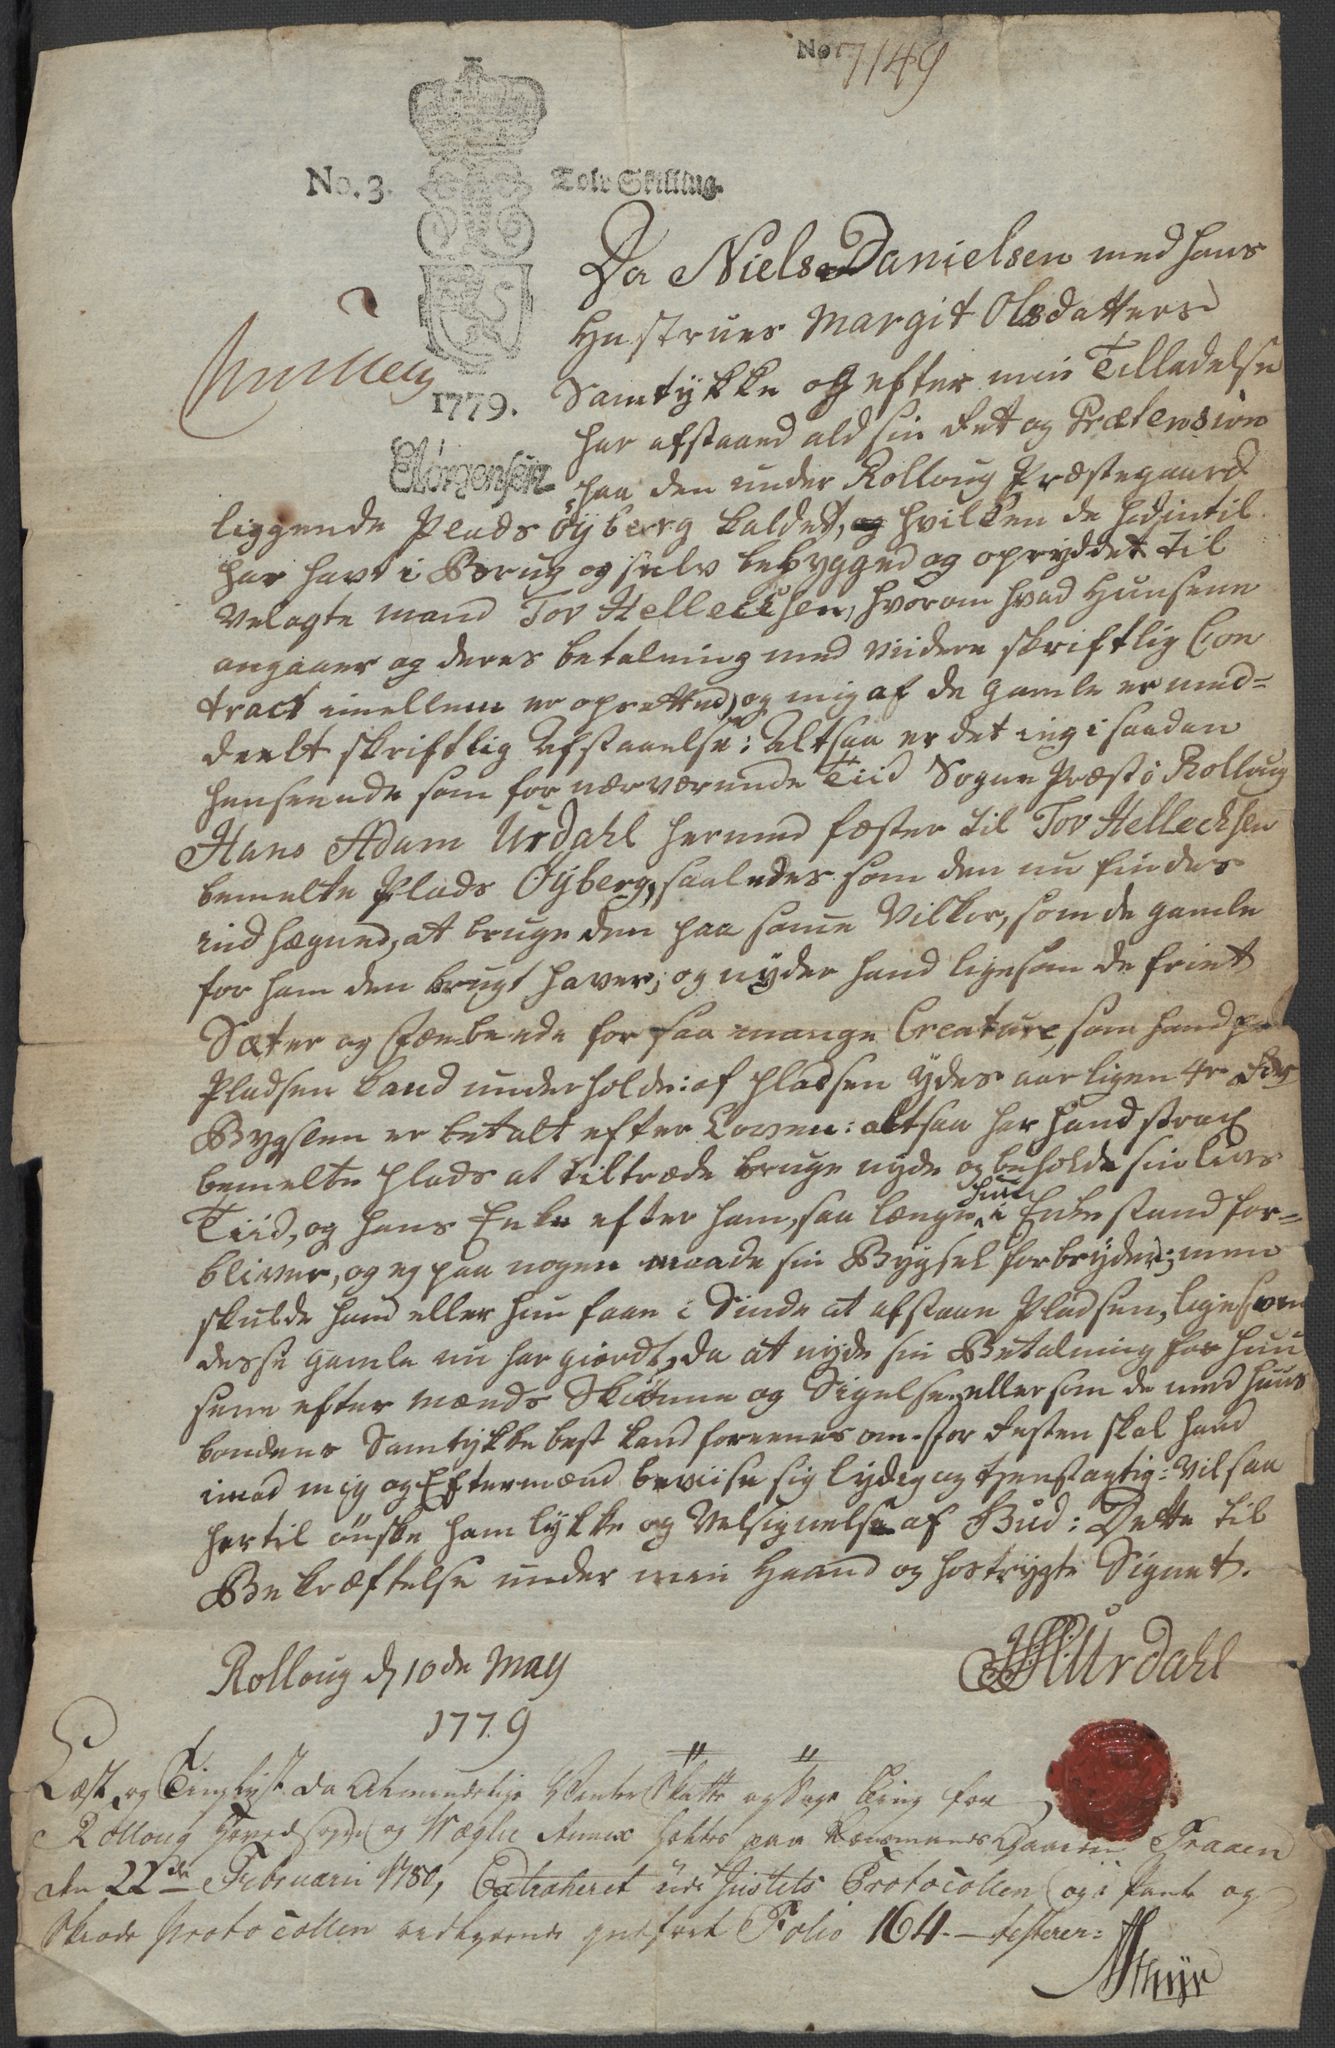 No 7149
No. 3. Tolv Skilling.
1779.
Da Niels Danielsen med hans
Hustrues Margit Olsdatters
Samtykke og efter min Tilladelse
har afstaaed ald sin Ret og Prætension
paa den under Rolloug Præstegaard
liggende Plads Öÿberg kaldet, og hvilken de hidintil
har havt i Brug og selv bebygged og opryddet til
Velagte Mand Tov Hellecksen, hvorom hvad Husene
angaaer og deres betalning med viidere skriftlig Con
tract imellem er opretted, og mig af de gamle er med=
deelt skriftlig Afstaaelse: Altsaa er det ieg i saadan
henseende som for nærværende Tiid Sogne Præst i Rolloug
Hans Adam Urdahl hermed fæster til Tov Hellecksen
bemelte Plads Öÿberg, saaledes som den nu findes
indhægned, at bruge den paa samme Vilkor, som de gamle
for ham den brugt haver; og nyder hand ligesom de friet
Sæter og Fæebeede for saa mange Creature, som hand paa
Pladsen kand underholde: af pladsen ydes aarligen
Bygslen er betalt efter Loven: altsaa har hand strax
bemelte plads at tiltræde bruge nyde og beholde sin Livs
Tiid, og hans Enke efter ham, saa længe hun i Enkestand for=
bliver, og ey paa nogen maade sin Bygsel forbryder; men
skulde hand eller hun faae i Sinde at afstaae Pladsen, ligesom
desse gamle nu har giordt, da at nyde sin Betalning for Huu
sene efter Mænds Skiönne og Sigelse, eller som de med Huus
bondens Samtykke best kand foreenes om. for Resten skal hand
imod mig og Eftermænd beviise sig lydig og tienstagtig: Vil saa
hertil önske ham lykke og Velsignelse af Gud: Dette til
Bekræftelse under min Haand og hostrygte Signet.
Rolloug d 10de May
1779
HAUrdahl
Læst og Tinglyst da Almindelige Vinter Skatte og Sage Ting for
Rolloug Hovedsogn og Væglie Annex holtes paa Lensmands Gaarden Traaen
den 22de Februarii 1780, Extraheret udi Justits Protocollen og i Pante og
Skiøde Protocollen vedkommende indført Folio 164. – testerer:
AThyr